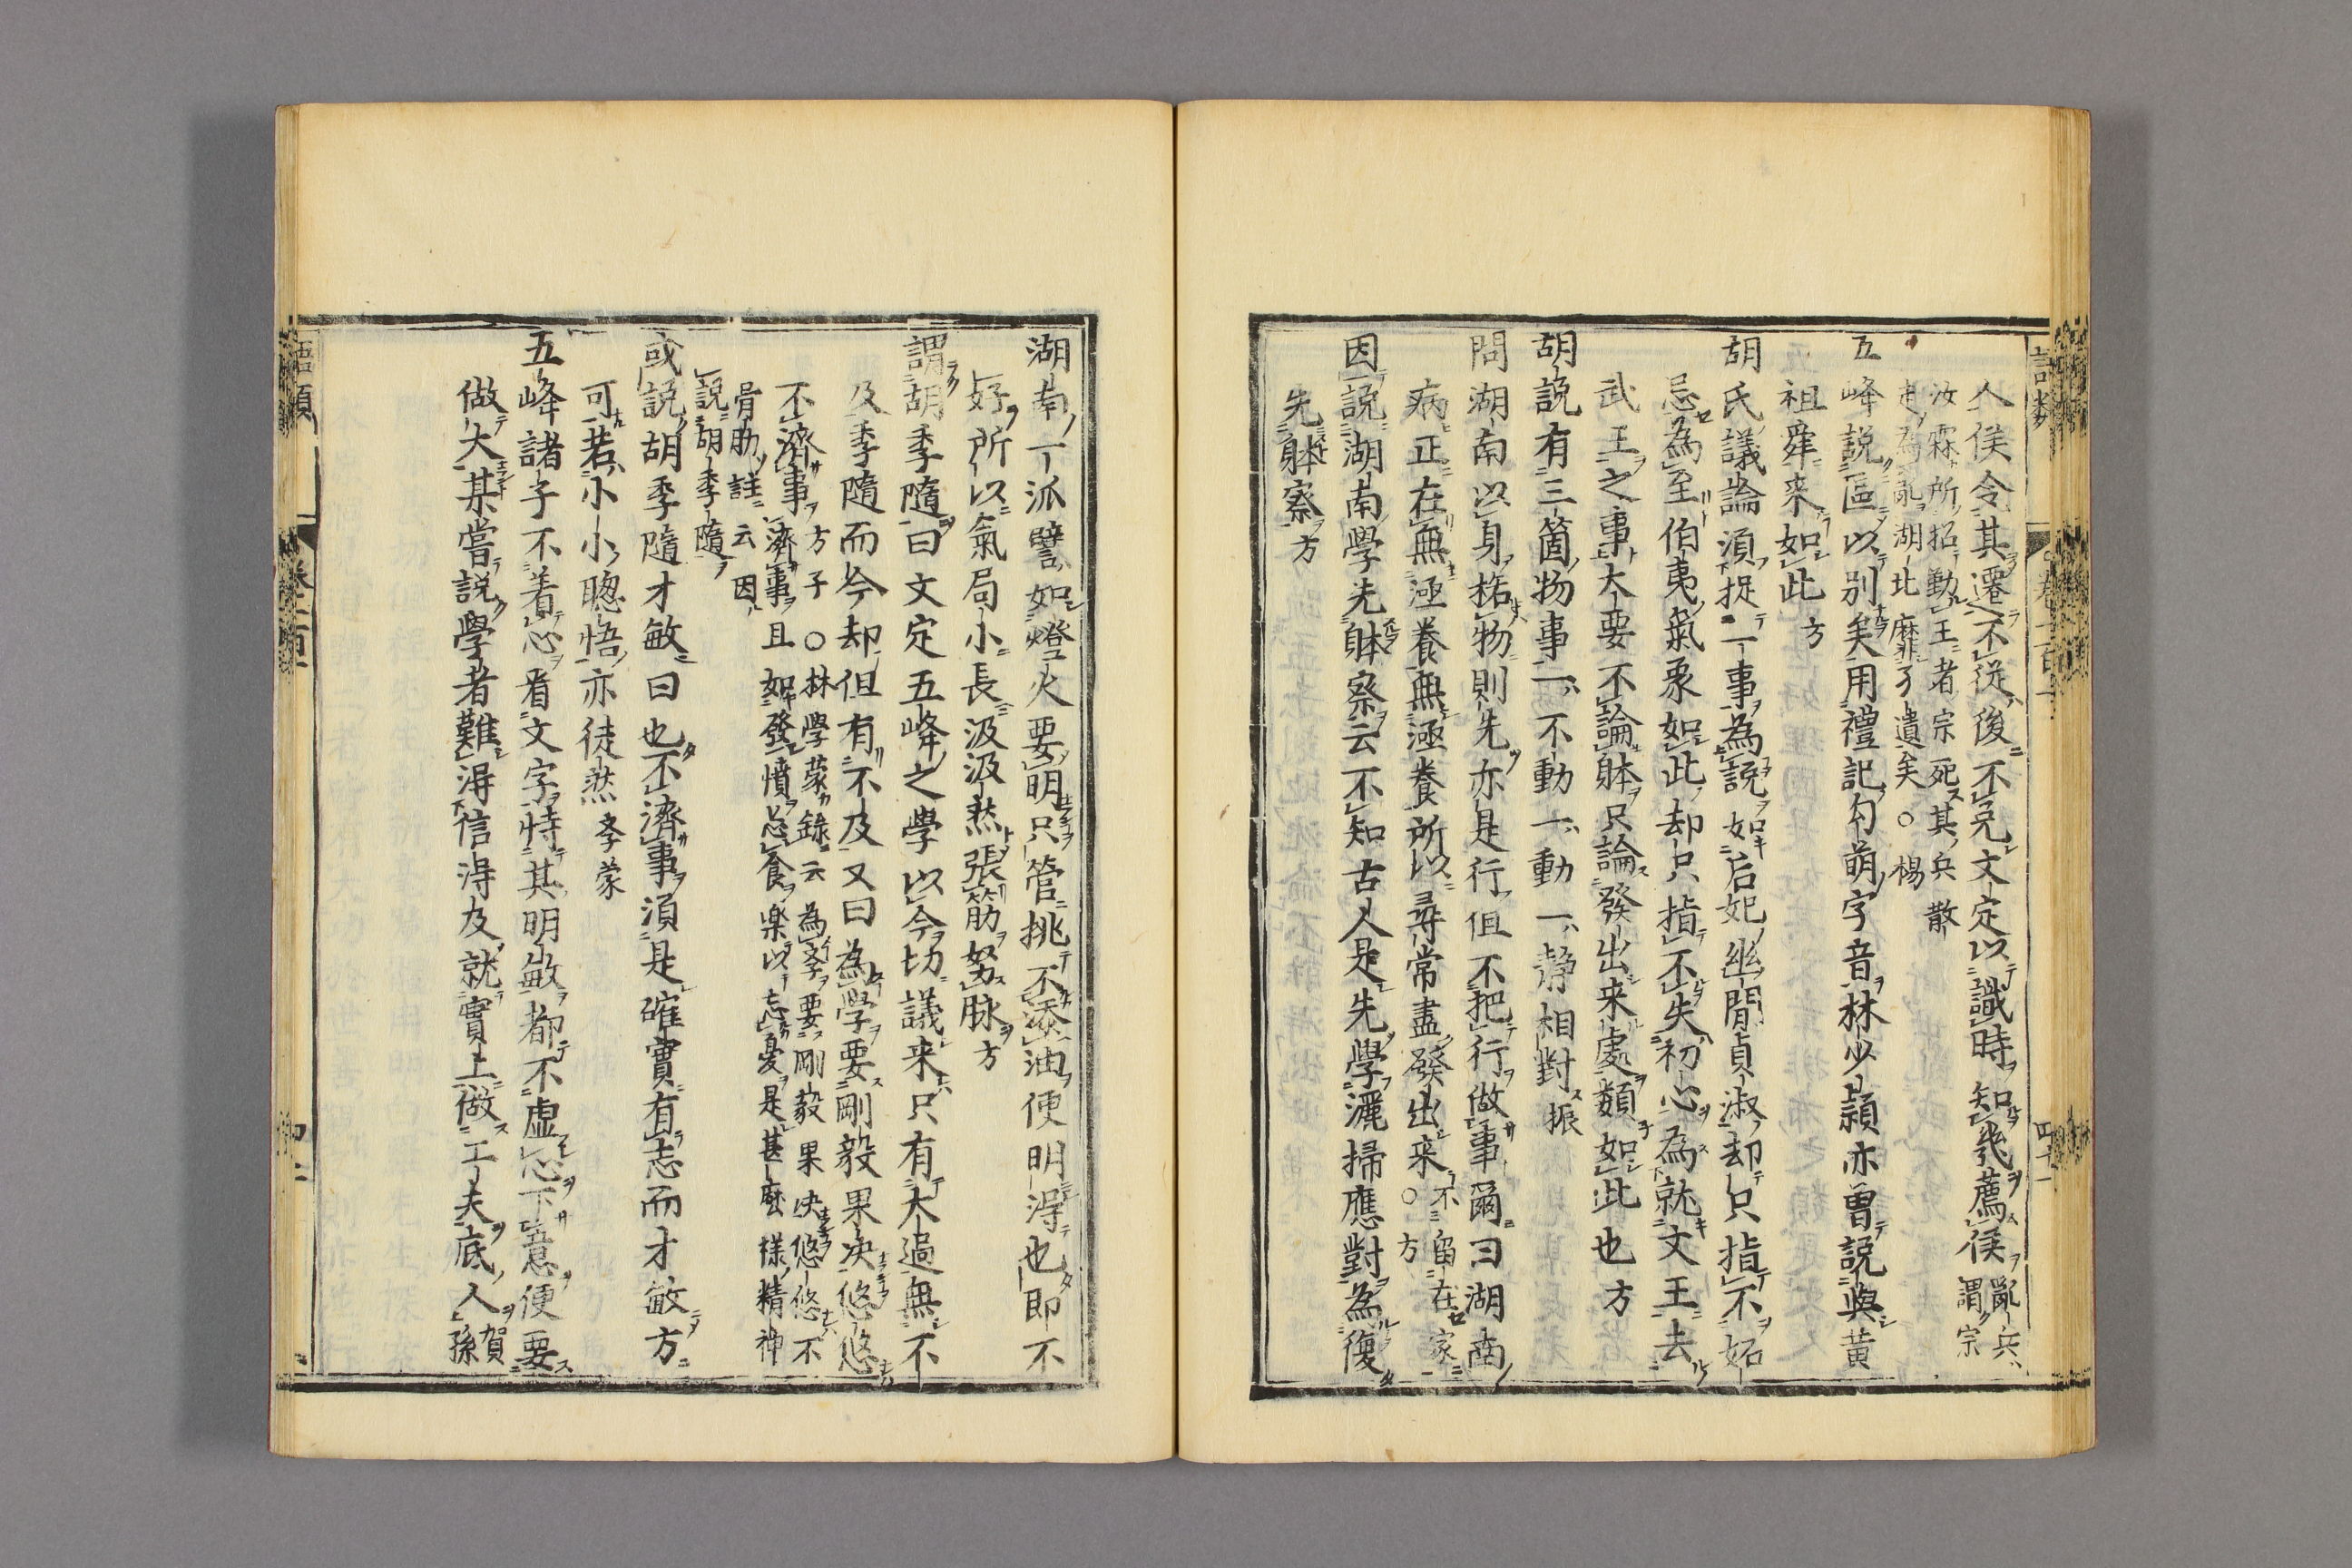 人侯令其遷不從後不克文定以識時知幾薦侯亂兵謂宗
汝霖所招勤王者宗死其兵散
走為亂湖北靡孑遺矣○楊
五峰說區以別矣用禮記勾萌字音林少頴亦曽說與黃
祖舜来如此方
胡氏議論須捉一事為說如后妃幽閒貞淑却只指不妬
忌為至伯夷氣象如此却只指不失初心為就文王去
武王之事大要不論躰只論發出来處類如此也方
胡說有三箇物事一不動一動一靜相對振
問湖南以身格物則先亦是行但不把行做事爾曰湖南
病正在無涵養無涵養所以尋常盡發出来不留在家○方
因說湖南學先躰察云不知古人是先學灑掃應對為復
先躰察方
湖南一派譬如燈火要明只管挑不添油便明得也即不
好所以氣局小長汲汲然張筋努脉方
謂胡季隨曰文定五峰之學以今切議来只有太過無不
及季隨而今却但有不及又曰為學要剛毅果决悠悠
不濟事方子○林學蒙錄云為學要剛毅果决悠悠不
濟事且如發憤忘食楽以忘憂是甚麽樣精神
骨肋註云因
說胡季隨
或說胡季隨才敏曰也不濟事須是確實有志而才敏方
可若小小聰悟亦徒然李蒙
五峰諸子不着心看文字恃其明敏都不虛心下意便要
做大某嘗説學者難得信得及就實上做工夫底人賀孫